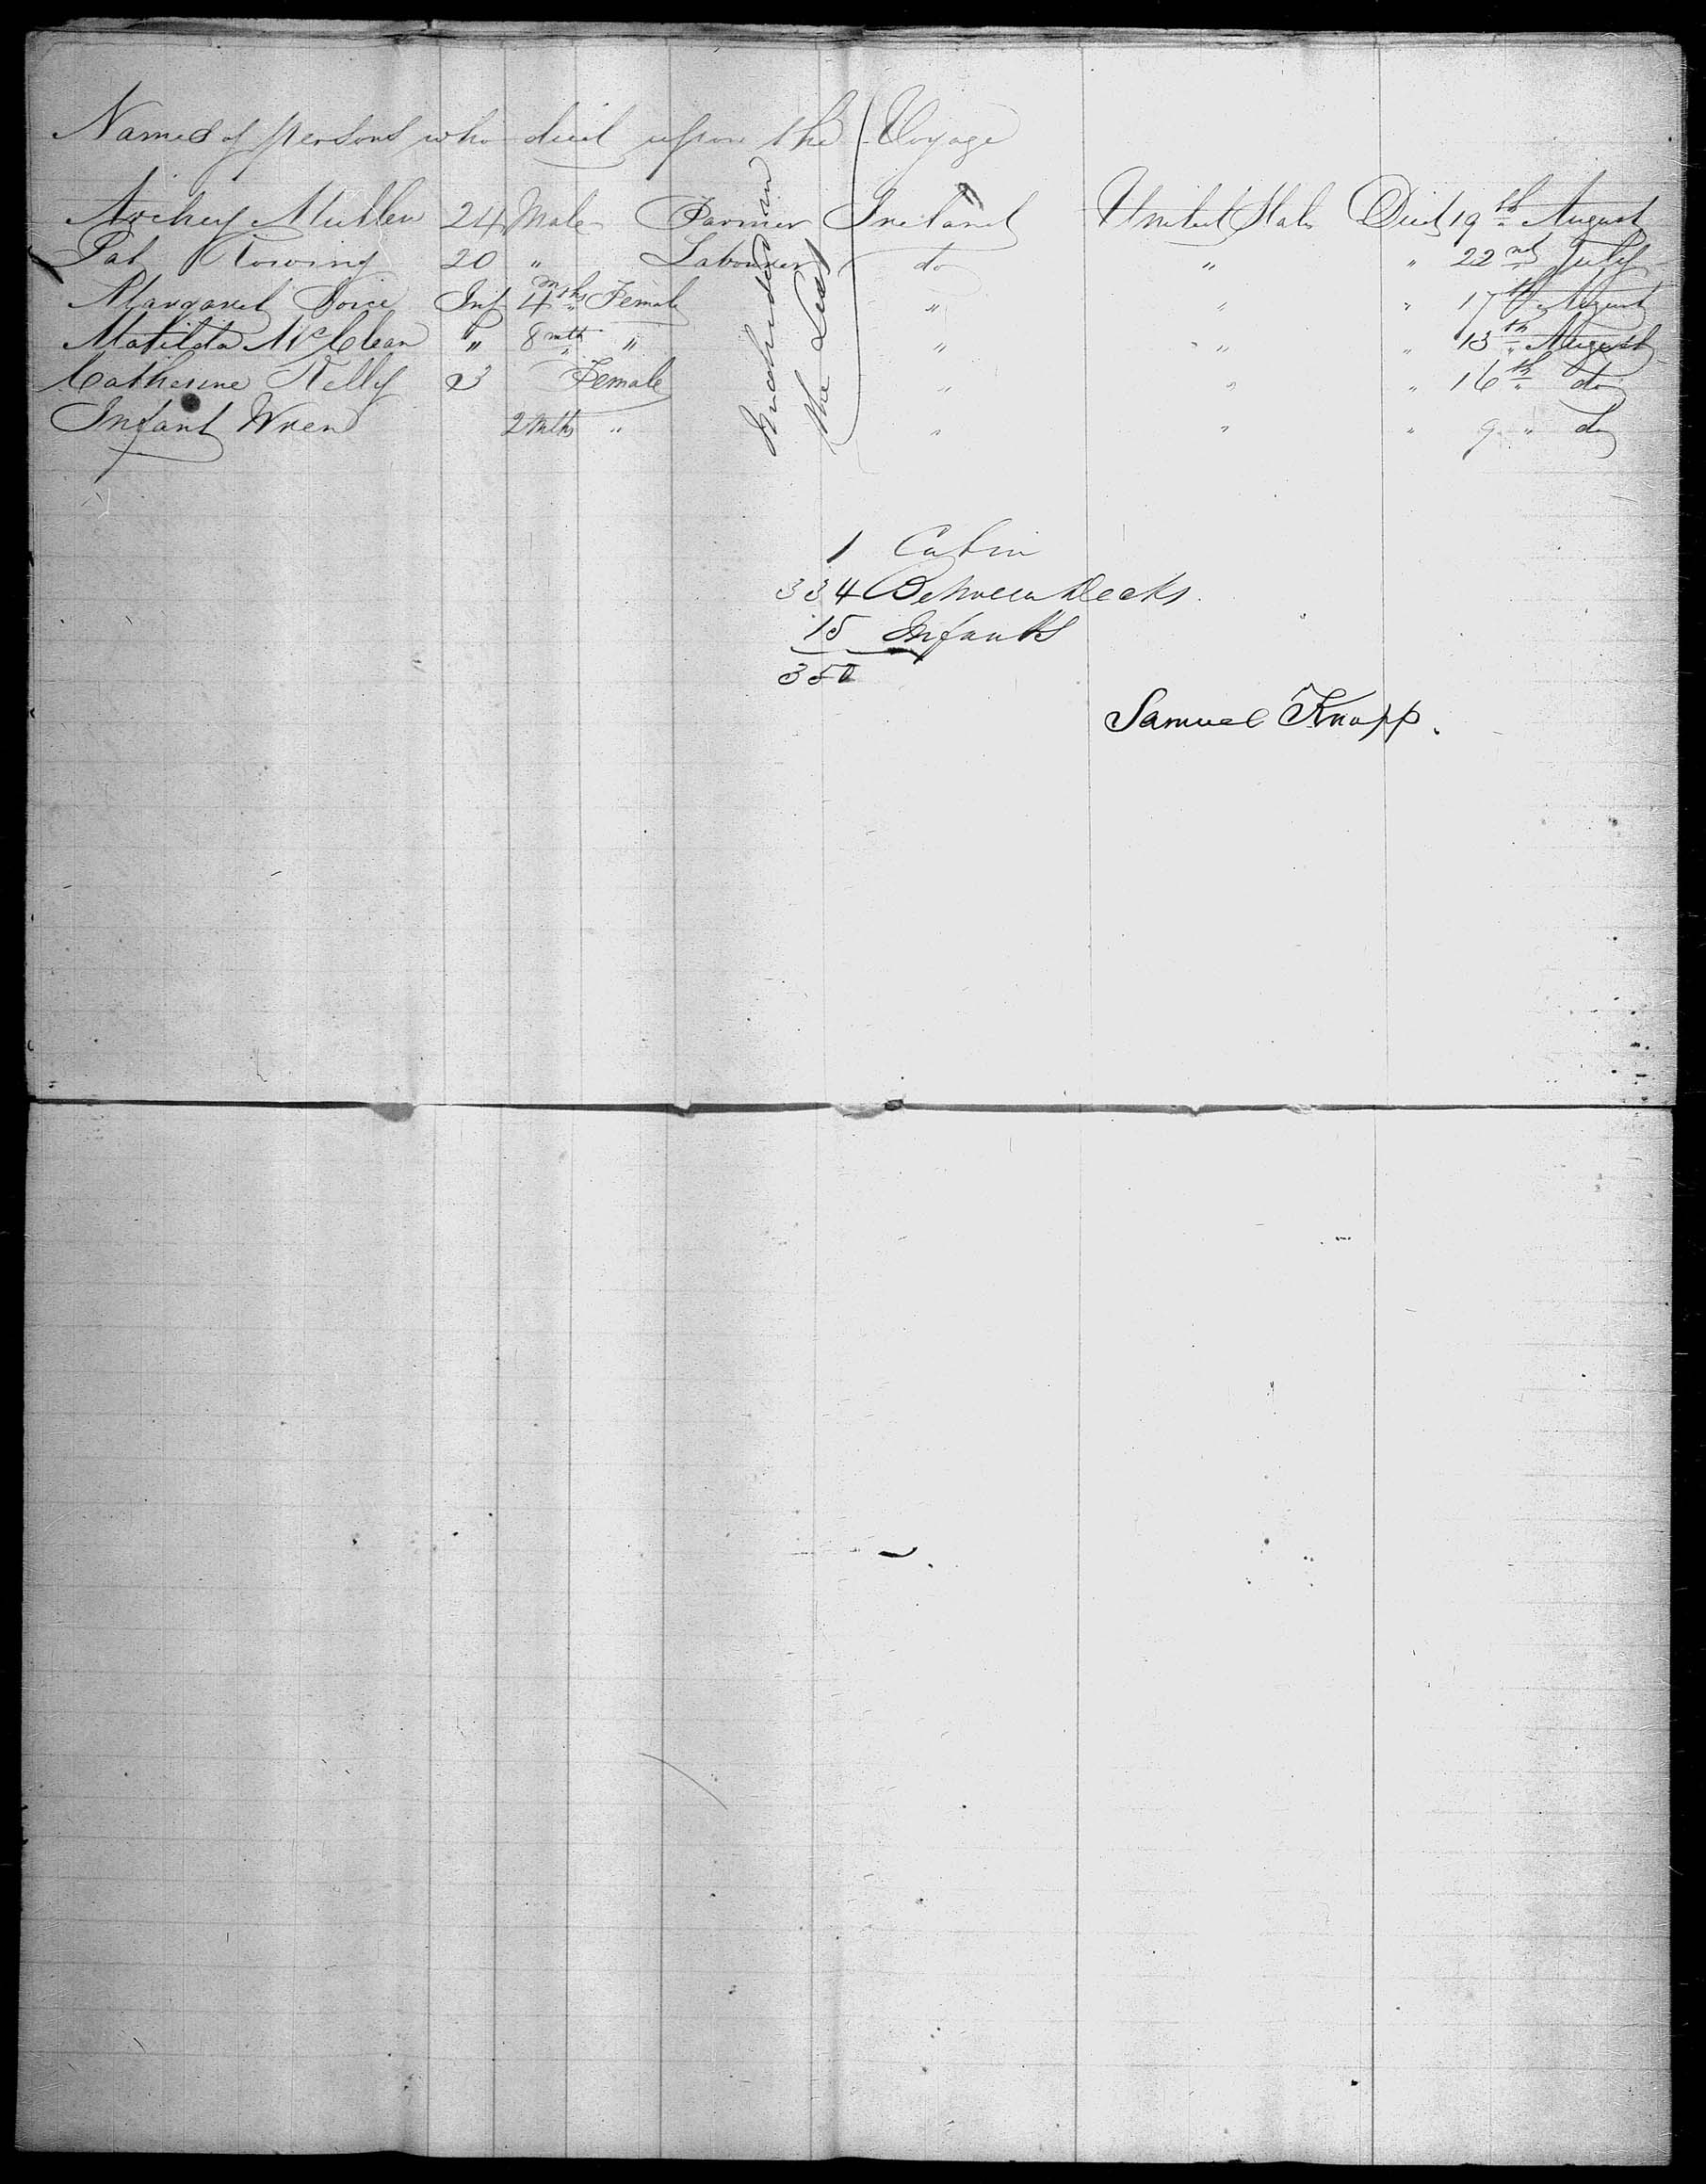 Names of persons who died upon the Voyage
Archey Mullen 24 Male Farmer Ireland United States Died 19th August
Pat 20 " Labourer do " " 22nd July
Margaret Joice Inf 4 mths Female " " " 17th August
Matilda McClean " 8 mth " " " " 13th August
Catherine Kelly 3 Female " " " 16th do
Infant Wren 2 mths " " " " 9 " do
Included in
the List
1 Cabin
334 Between Decks
15 Infants
350
Samuel Knapp.